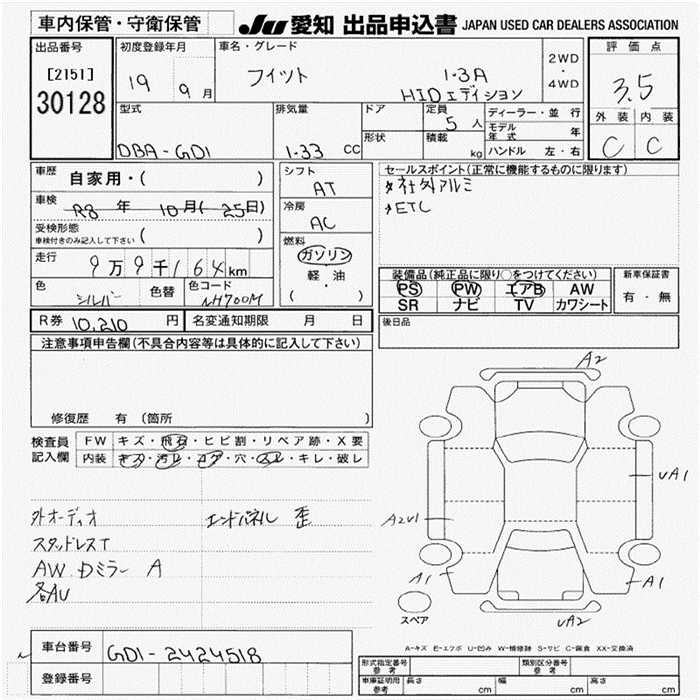 車内保管・守衛保管
JU 愛知 出品申込書 JAPAN USED CAR DEALERS ASSOCIATION
出品番号
[2151]
30128
初度登録年月
19 9月
車名・グレード
フィット 1.3A
HIDエディション
2WD
・
4WD
評価点
3.5
外装 内装
C C
型式
DBA-GD1
排気量
1.33 CC
ドア
形状
定員
5人
積載
kg
ディーラー・並行
モデル年式 年
ハンドル 左・右
車歴
自家用・( )
車検
R8年 10月(25日)
受検形態
車検付きのみ記入して下さい ( )
走行
9万9千164km
色
シルバー
色替
色コード
NH700M
シフト
AT
冷房
AC
燃料
ガソリン
軽・油
( )
セールスポイント(正常に機能するものに限ります)
社外アルミ
ETC
装備品(純正品に限り○をつけてください)
PS PW エアB AW
SR ナビ TV カワシート
新車保証書
有・無
R券 10,210円
名変通知期限 月 日
後日品
注意事項申告欄(不具合内容等は具体的に記入して下さい)
修復歴 有 (箇所 )
検査員
記入欄
FW キズ・飛石・ヒビ割・リペア跡・X要
内装 キズ・汚レ・コゲ・穴・スレ・キレ・破レ
外オーディオ エンドパネル 歪
スタッドレスT
AW Dミラー A
各AU
A2
UA1
A2U1
A1
A1
UA2
スペア
A-キズ E-エクボ U-凹み W-補修跡 S-サビ C-腐食 XX-交換済
車台番号
GD1-2424518
登録番号
形式指定番号
参考
類別区分番号
参考
車庫証明用
参考
長さ cm
幅 cm
高さ cm